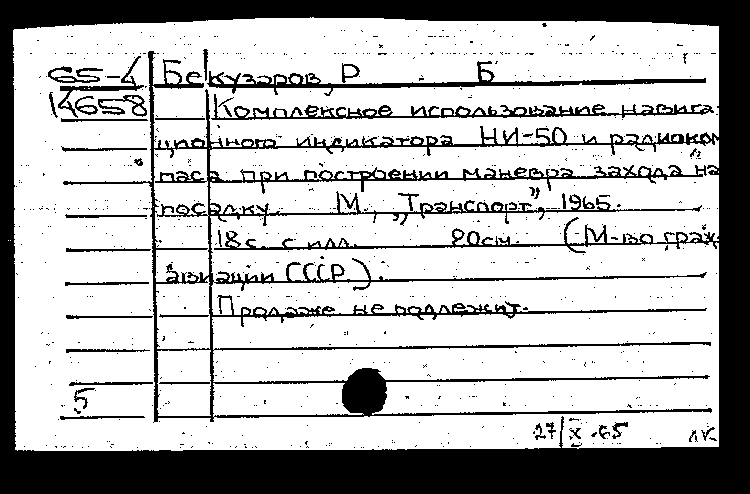 65-4 Бекузаров, Р. Б
14658 Комплексное использование навига
ционного индикатора НИ-50 и радиоком
паса при построении маневра захода на
посадку. М., „Транспорт", 1965.
18 с. с илл. 20 см. (М-во граж.
авиации СССР).
Продаже не подлежит.
5
27/X-65 ЛК